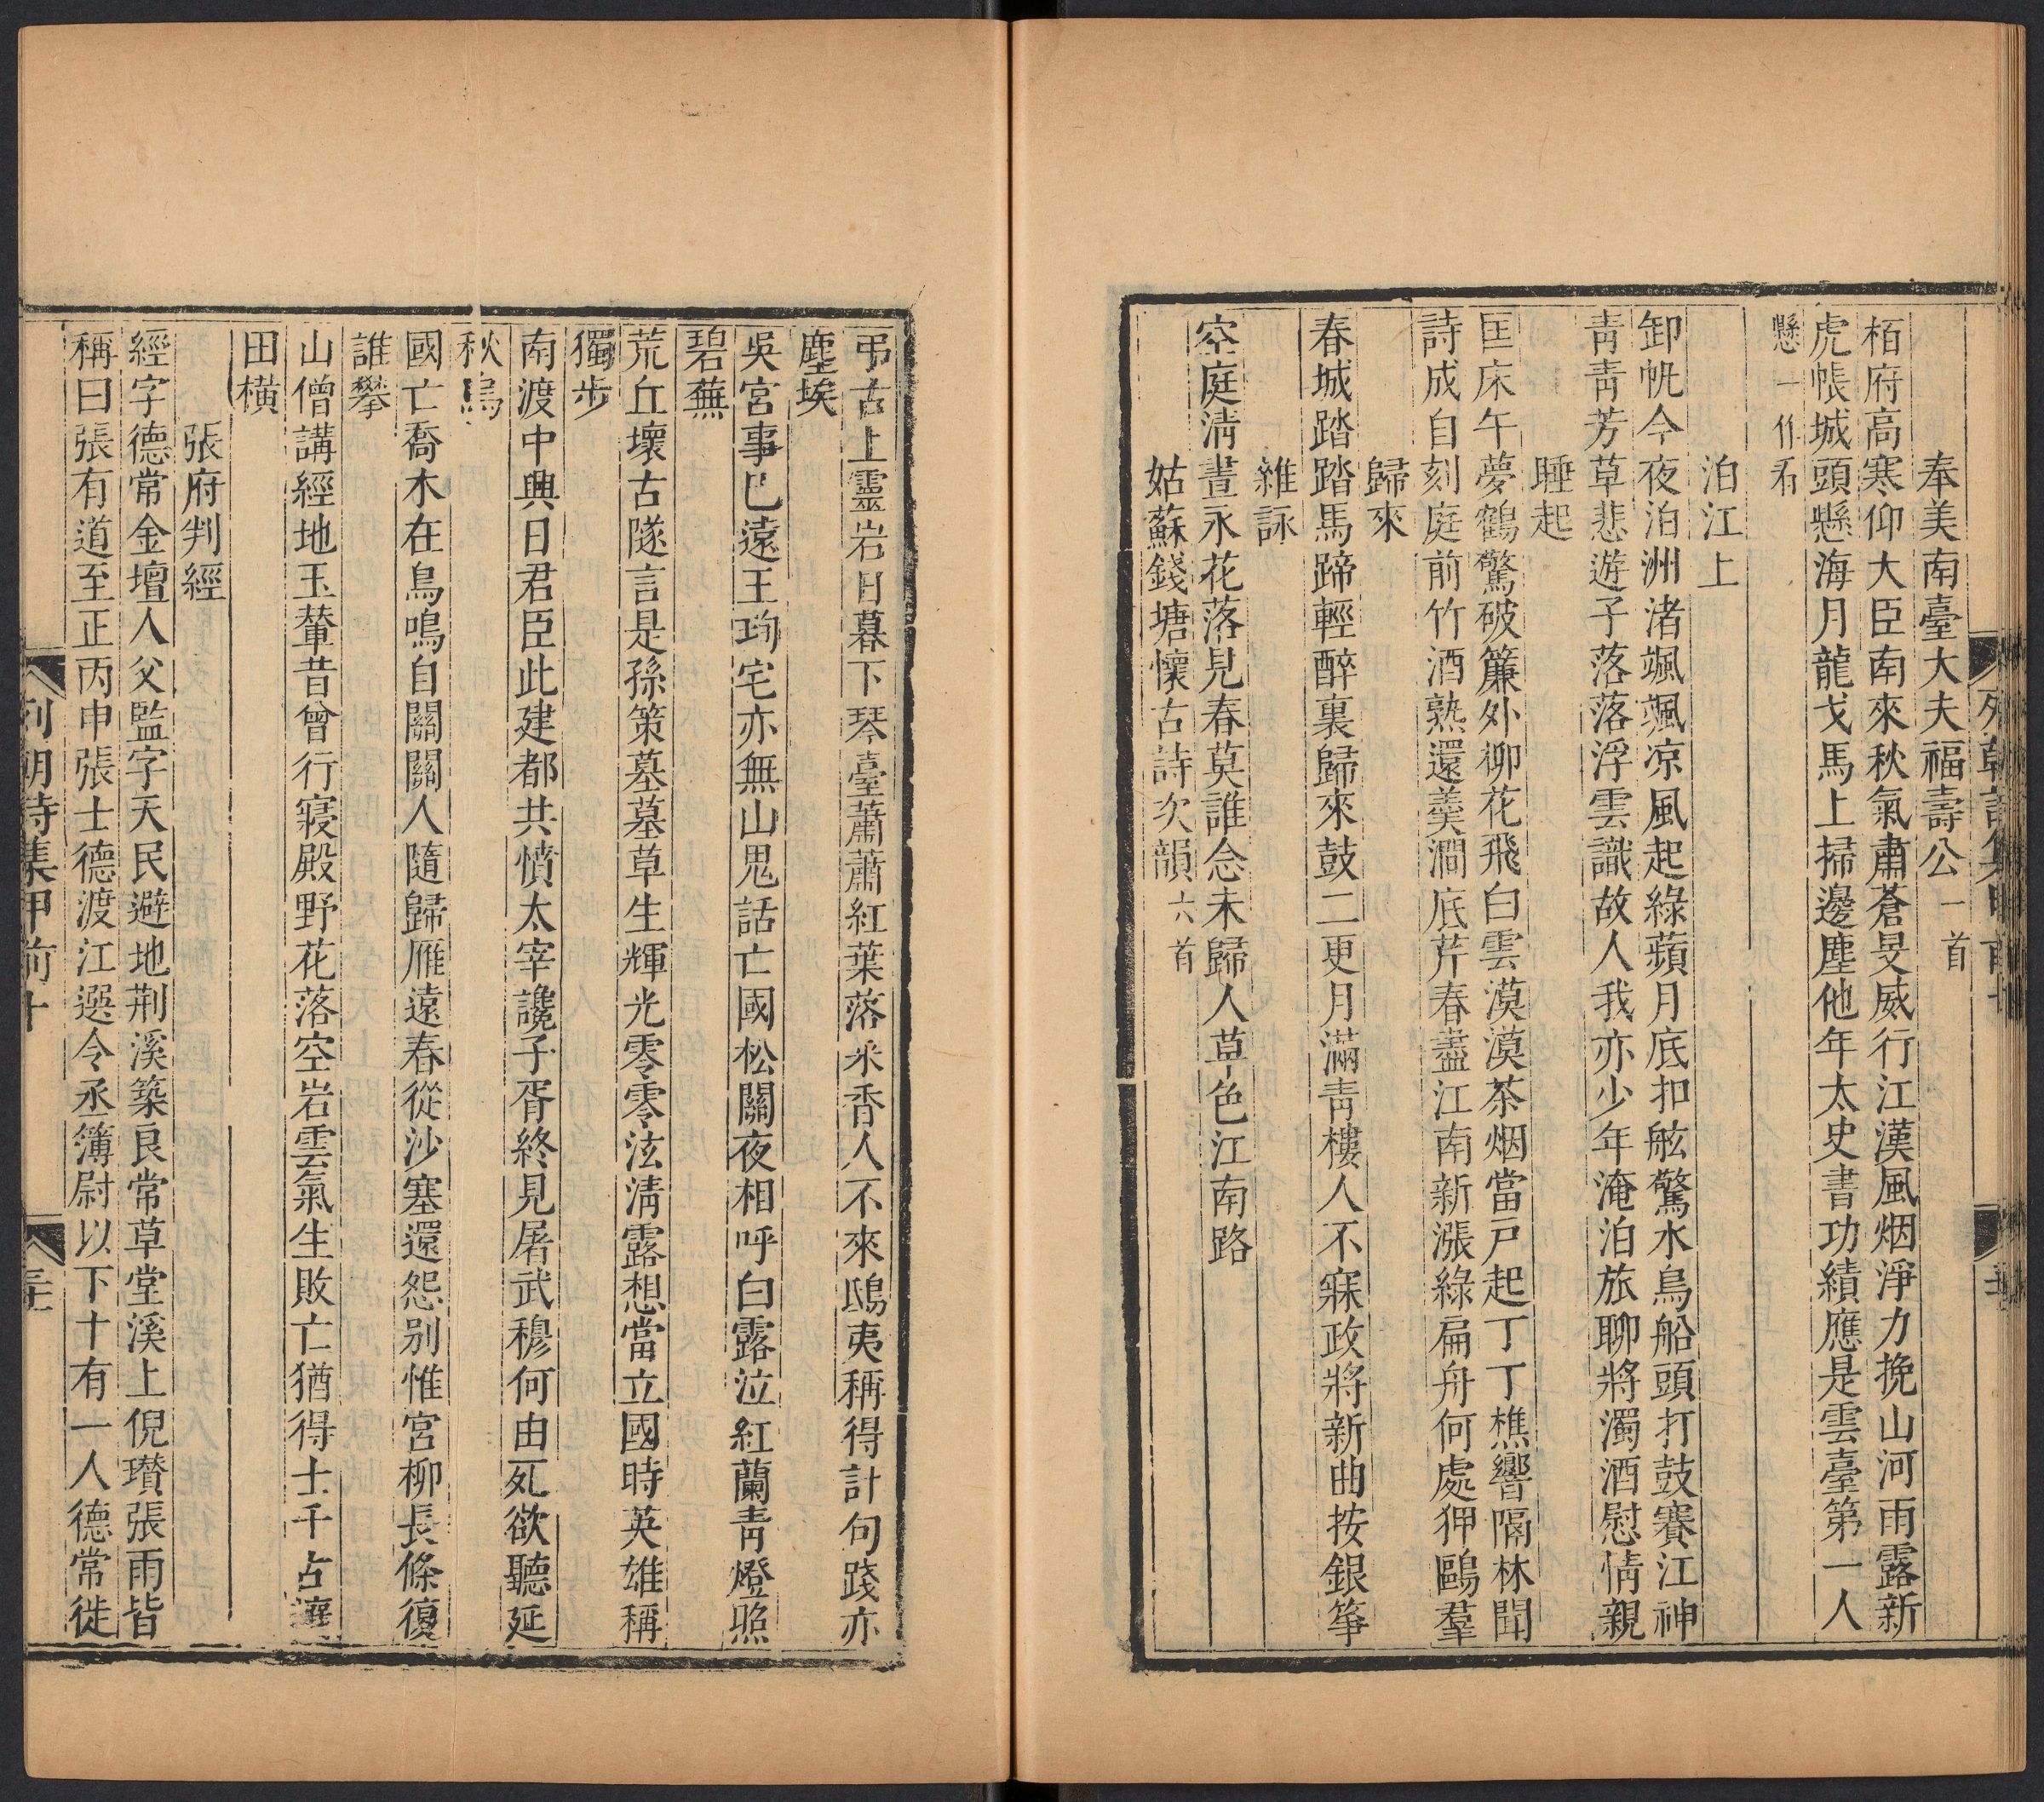 奉美南臺大夫福壽公一首
栢府高寒仰大臣南來秋氣肅蒼旻威行江漢風烟淨力挽山河雨露新
虎帳城頭懸海月龍戈馬上掃邊塵他年太史書功績應是雲臺第一人
懸一作看
泊江上
卸帆今夜泊洲渚颯颯凉風起綠蘋月底扣舷驚水鳥船頭打鼓賽江神
靑靑芳草悲遊子落落浮雲識故人我亦少年淹泊旅聊將濁酒慰情親
睡起
匡床午夢鶴驚破簾外柳花飛白雲漠漠茶烟當戸起丁丁樵響隔林聞
詩成自刻庭前竹酒熟還羹澗底芹春盡江南新漲綠扁舟何處狎鷗羣
歸來
春城踏踏馬蹄輕醉裏歸來鼓二更月滿靑樓人不寐政將新曲按銀箏
雜詠
空庭淸晝永花落見春莫誰念未歸人草色江南路
姑蘇錢塘懷古詩次韻六首
弔古上靈岩日暮下琴臺蕭蕭紅葉落采香人不來鴟夷稱得計句踐亦
塵埃
吳宮事已遠王珣宅亦無山鬼話亡國松關夜相呼白露泣紅蘭靑燈照
碧蕪
荒丘壞古隧言是孫策墓墓草生輝光零零泫淸露想當立國時英雄稱
獨步
南渡中興日君臣此建都共憤太宰讒子胥終見屠武穆何由死欲聽延
秋烏
國亡喬木在鳥鳴自關關人隨歸雁遠春從沙塞還怨别惟宮柳長條復
誰攀
山僧講經地玉輦昔曾行寢殿野花落空岩雲氣生敗亡猶得士千古讓
田橫
張府判經
經字德常金壇人父監字天民避地荆溪築良常草堂溪上倪瓚張雨皆
稱曰張有道至正丙申張士德渡江選令丞簿尉以下十有一人德常徙
列朝詩集甲前十